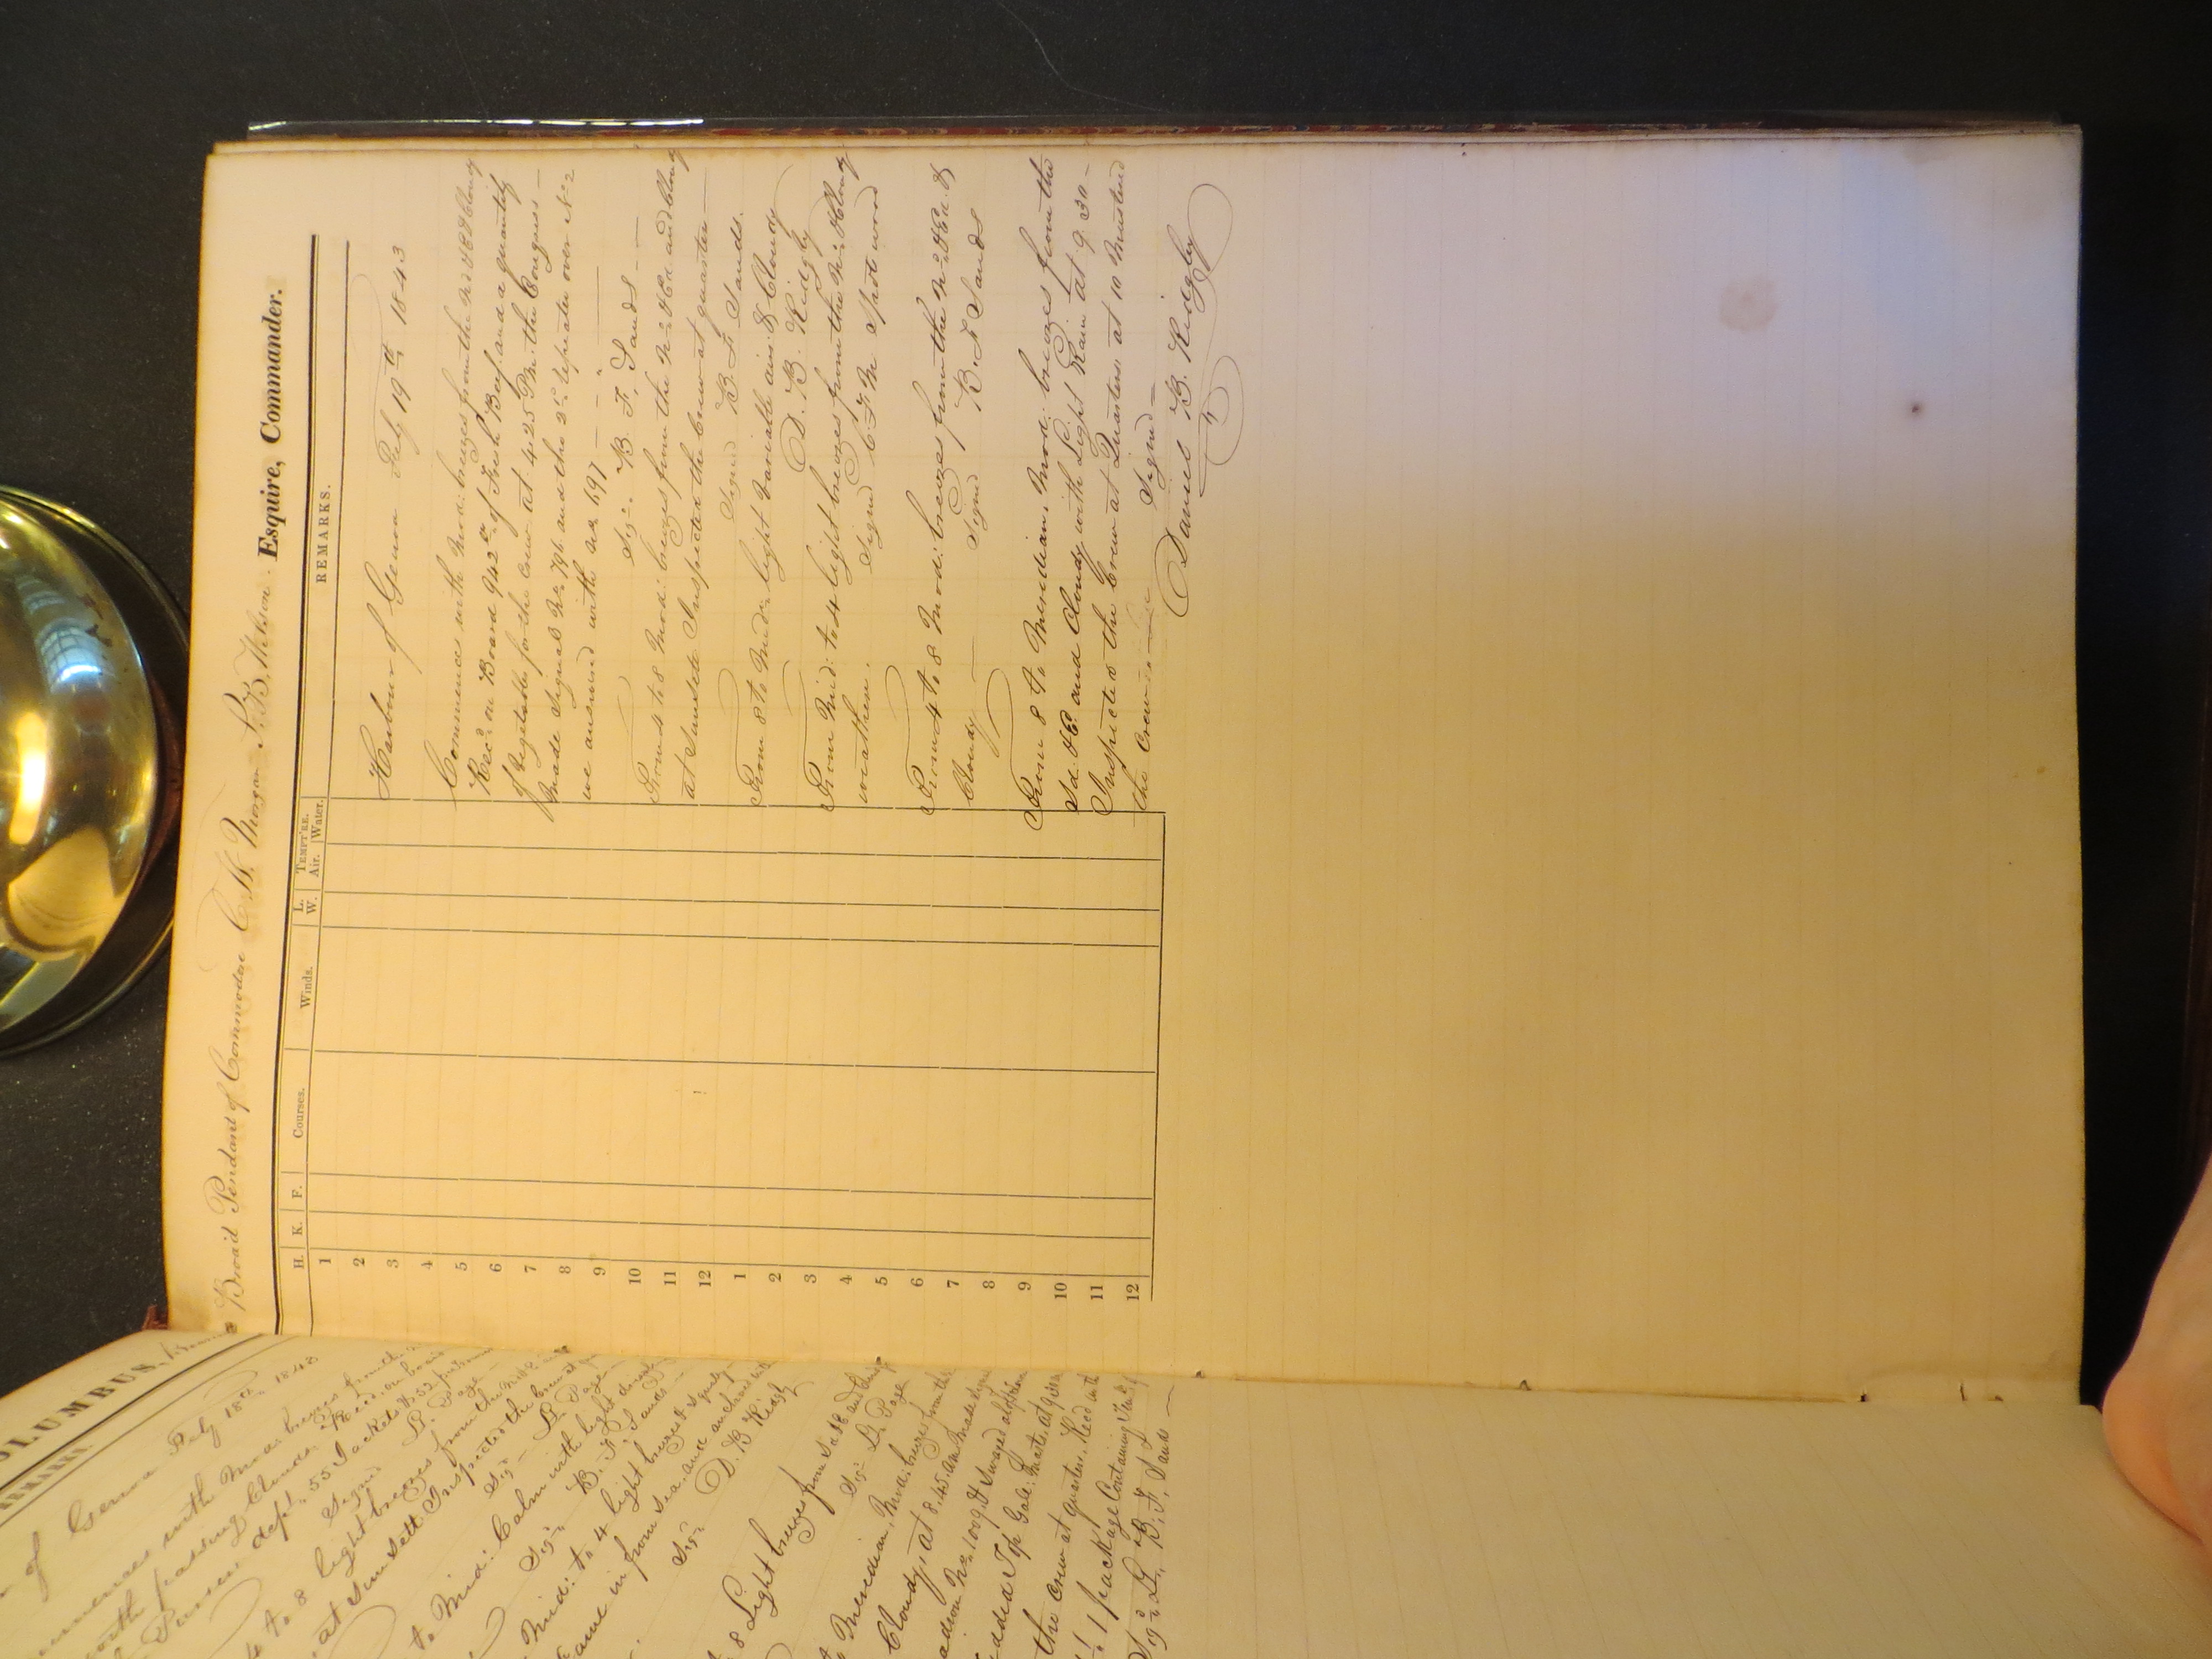 Broad Pendant of Commodore C. W. Morgan S. B. Wilson Esquire, Commander.
H. K. F. Courses. Winds. L. W. TEMPT'RE. Air. Water. REMARKS.
1
2
3
4
5
6
7
8
9
10
11
12
1
2
3
4
5
6
7
8
9
10
11
12
Harbour of Genoa July 19th 1843
Commences with Mod: breezes from the Nd & Cloudy
Recd on Board 942 lbs of Fresh Beef and a quantity
of Vegetables for the Crew at 4.25 PM the Congress —
made Signal No 796 and the 2d repeater over No 2
we answered with No 697 —
Sigd. B. F. Sands —
From 4 to 8 Mod: breezes from the Nd & Ed and Cloudy
at sunsett Inspected the Crew at quarters —
Signed B. F. Sands.
From 8 to Mid: light variable airs & Cloudy
D. B. Ridgly
From Mid: to 4 light breezes from the Nd & Cloudy
weather. Signed C. F. M. Spotswood
From 4 to 8 Mod: breezes from the Nd & Ed &
Cloudy — Signed B. F. Sands
From 8 to Meridian, Mod: breezes from the
Sd & Ed and Cloudy with Light Rain at 9.30 —
Inspected the Crew at Quarters at 10 Mustered
the Crew —
Signed —
Daniel B. Ridgely
COLUMBUS,
REMARKS.
of Genoa July 18th 1843
with Mod: breezes from
with passing Clouds. Recd. on board
Purser dept. 55 Jackets & 52
Signed L. Page
to 8 light breezes from the
at sunsett Inspected the Crew at
Sigd L. Page
to Mid: Calm with light
Sigd B. F. Sands
Mid: to 4 light breezes &
came in from sea and anchored
Sigd D. B. Ridgly
8 Light breezes from Sd & Ed and
Sigd L. Page
Meridian, Mod: breezes from the
Cloudy, at 8.45 am made signal
No 1009, & Swayed aloft
Top Gall: Masts, at
the Crew at quarters. Recd
1 package Containing
Sigd B. F. Sands —